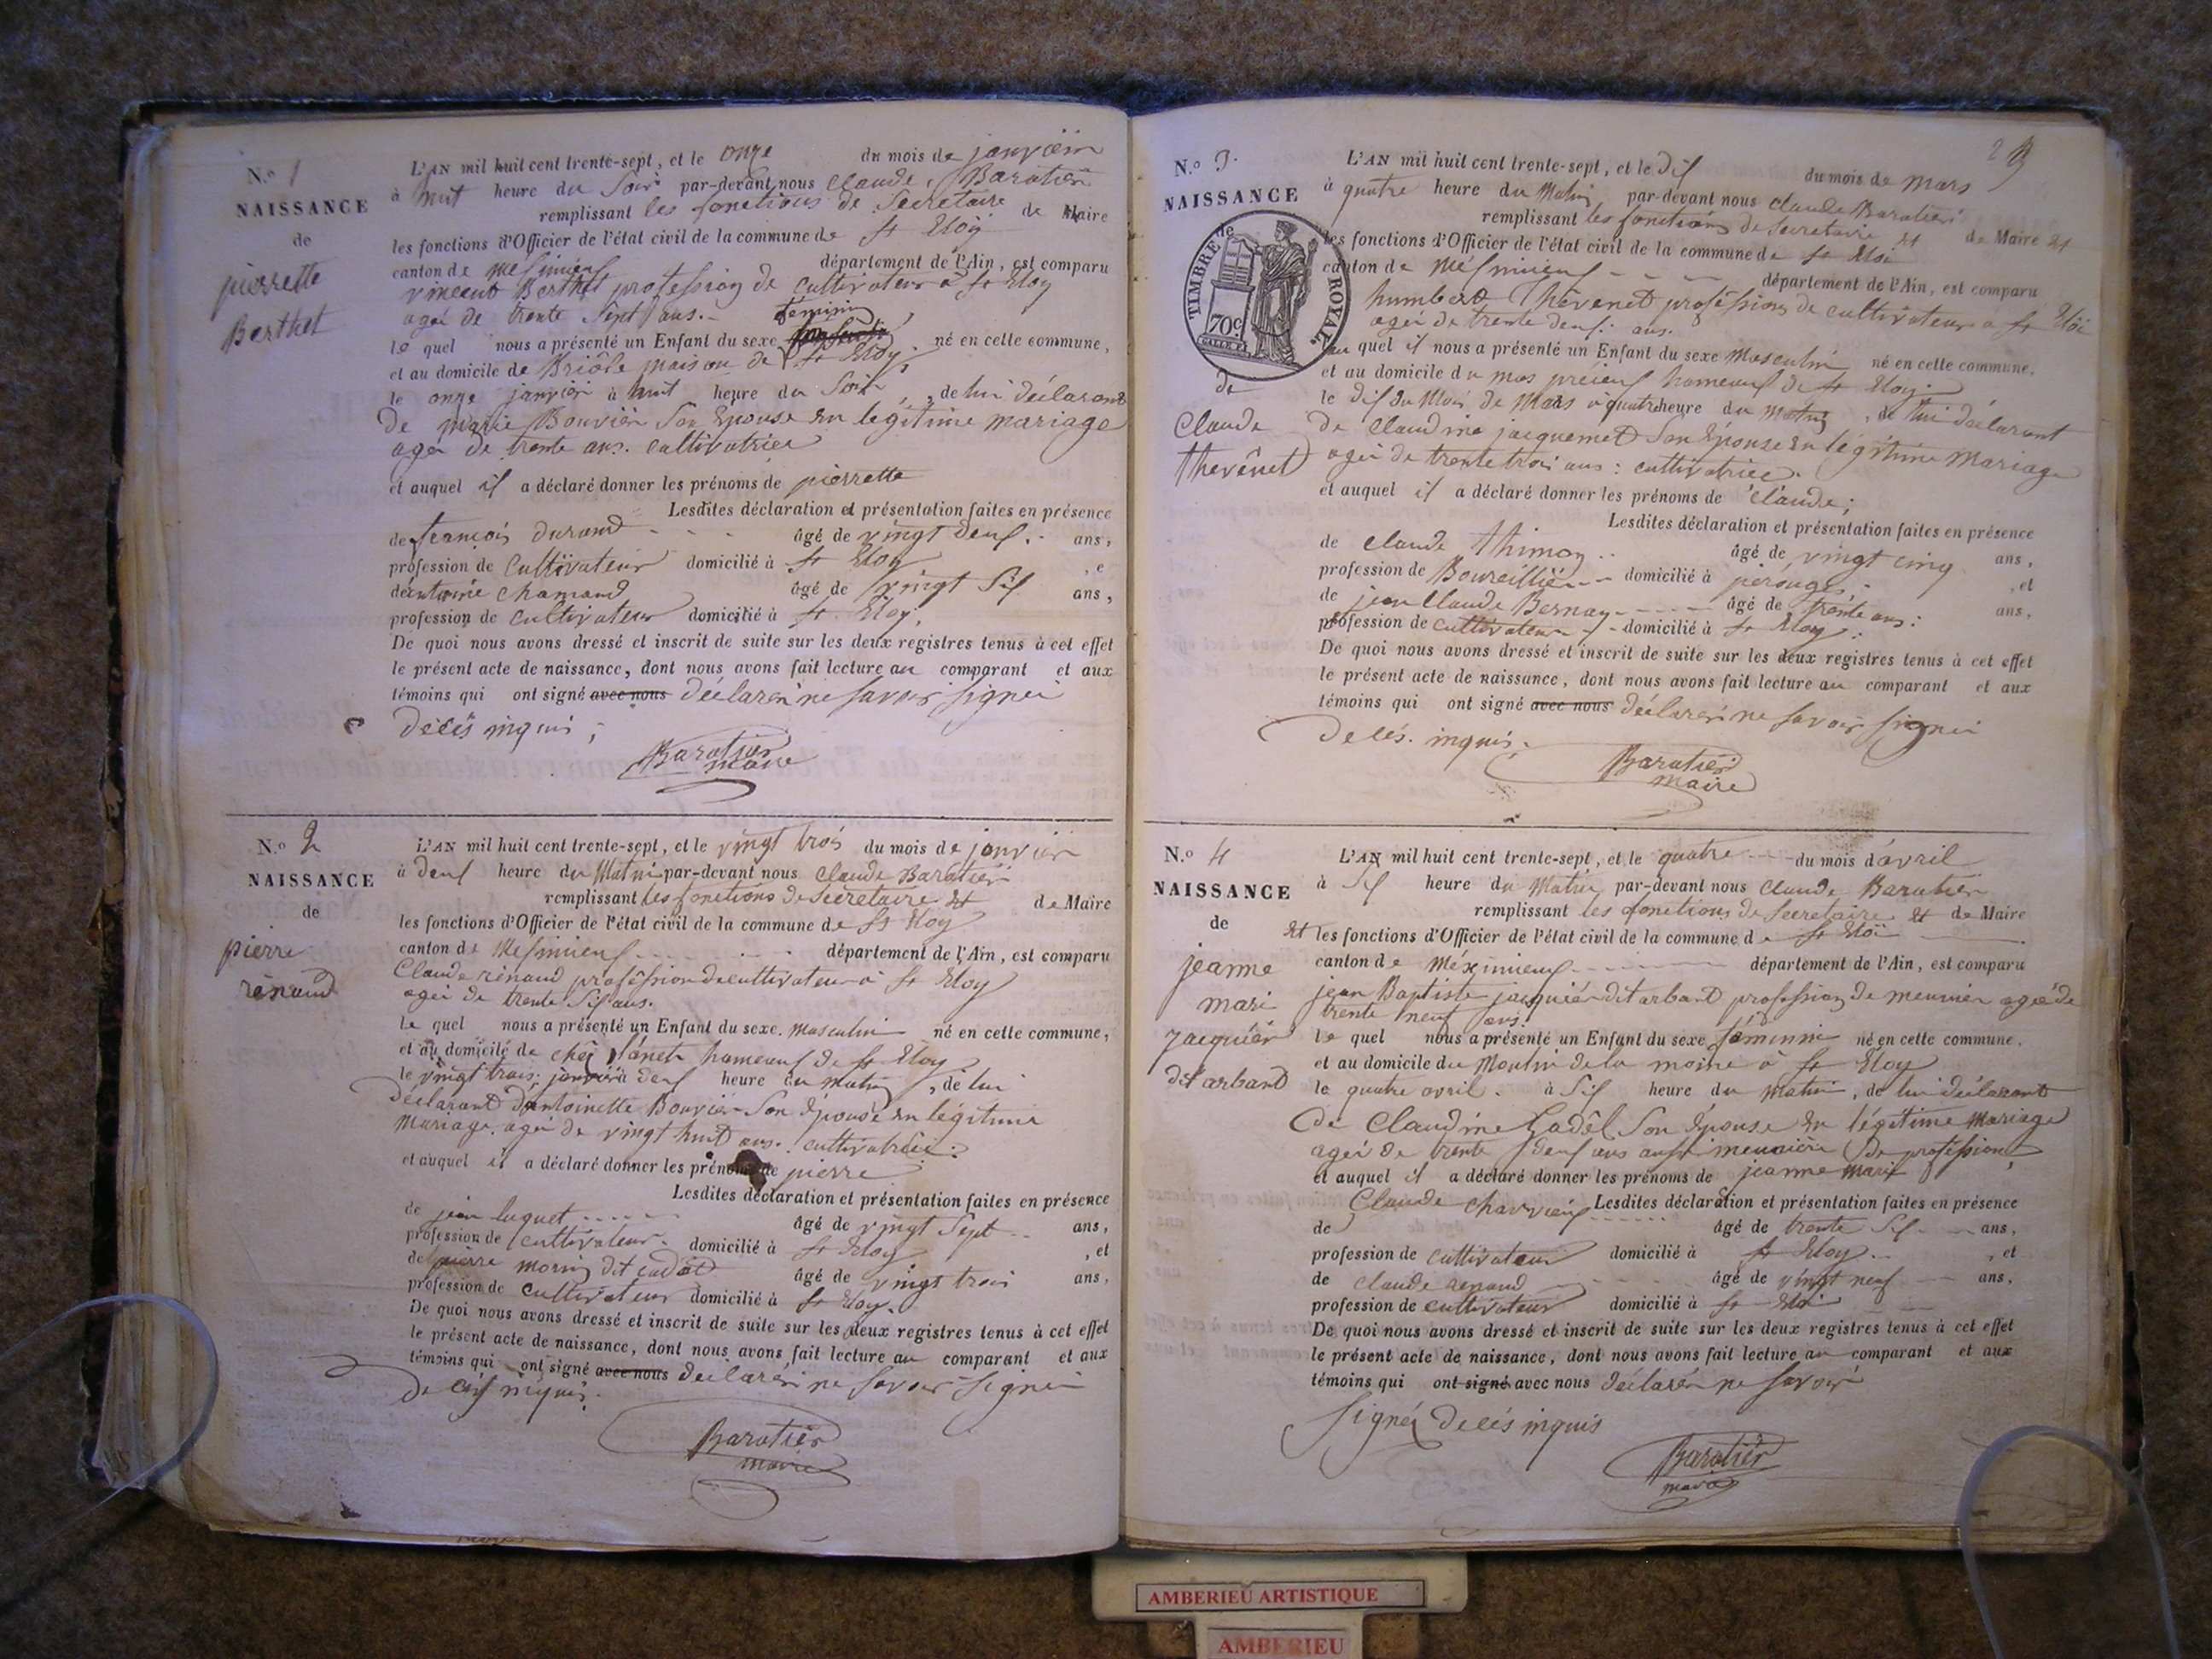 N.o 1
NAISSANCE
de
pierrette
Berthet
L'AN mil huit cent trente-sept, et le onze du mois de janvier
à huit heure du Soir par-devant nous Claude Baratier
remplissant les fonctions de Secretaire de Maire
les fonctions d'Officier de l'état civil de la commune de St Eloy
canton de Mesimieux département de l'Ain, est comparu
vincent Berthet profession de cultivateur à St Eloy
agé de trente Sept ans.
féminin
le quel nous a présenté un Enfant du sexe né en cette commune,
et au domicile de Briôle maison de St Eloy
le onze janvier à huit heure du Soir, de lui déclarant
De marie Bouvier Son Epouse en legitime mariage
agée de trente ans. cultivatrice
et auquel il a déclaré donner les prénoms de pierrette
Lesdites déclaration et présentation faites en présence
de francois durand âgé de vingt deux ans,
profession de Cultivateur domicilié à St Eloy, e
d'antoine chamand âgé de vingt Six ans,
profession de cultivateur domicilié à St Eloy.
De quoi nous avons dressé et inscrit de suite sur les deux registres tenus à cet effet
le présent acte de naissance, dont nous avons fait lecture au comparant et aux
témoins qui ont signé avec nous déclaren ne savoir signer
de cés inquis;
Baratier
maire
N.o 2
NAISSANCE
de
pierre
rénaud
L'AN mil huit cent trente-sept, et le vingt trois du mois de janvier
à deux heure du Matin par-devant nous Claude Baratier
remplissant les fonctions de Sécrétaire et de Maire
les fonctions d'Officier de l'état civil de la commune de St Eloy
canton de Mesimieux département de l'Ain, est comparu
Claude rénaud proféssion de cultivateur à St Eloy
agé de trente Six ans.
le quel nous a présenté un Enfant du sexe masculin né en cette commune,
et au domicile de chéz hameaux de St Eloy
le vingt trois janvier à deux heure du matin, de lui
déclarant d'antoinette Bouvier Son épouse en légitime
Mariage agée de vingt huit ans. cultivatrice.
et auquel il a déclaré donner les prénoms de pierre
Lesdites déclaration et présentation faites en présence
de jean luquet âgé de vingt Sept ans,
profession de cultivateur domicilié à St Eloy, et
de pierre morin dit cadot âgé de vingt trois ans,
profession de cultivateur domicilié à St Eloy.
De quoi nous avons dressé et inscrit de suite sur les deux registres tenus à cet effet
le présent acte de naissance, dont nous avons fait lecture au comparant et aux
témoins qui ont signé avec nous déclaren ne savoir signer
de cés inquis.
Baratier
maire
N.o 3.
NAISSANCE
TIMBRE ROYAL
70c
de
Claude
thevênet
L'AN mil huit cent trente-sept, et le dix du mois de mars
à quatre heure du Matin par-devant nous claude Baratier
remplissant les fonctions de Sécretaire et de Maire et
les fonctions d'Officier de l'état civil de la commune de St Eloi
canton de Mésimieux département de l'Ain, est comparu
humbert Thévenet proféssion de cultivateur à St Eloi
agé de trente deux ans.
au quel il nous a présenté un Enfant du sexe Masculin né en cette commune.
et au domicile du mas hameaux de St Eloy
le dix du Mois de Mars à quatre heure du Matin, de lui déclarant
De claudine jacquemet Son épouse en légitime Mariage
agée de trente trois ans: cultivatrice.
et auquel il a déclaré donner les prénoms de Claude;
Lesdites déclaration et présentation faites en présence
de claude thimon âgé de vingt cinq ans,
profession de domicilié à pérouge, et
de jean Claude Bernay âgé de trente ans: ans,
profession de cultivateur domicilié à St Eloy.
De quoi nous avons dressé et inscrit de suite sur les deux registres tenus à cet effet
le présent acte de naissance, dont nous avons fait lecture au comparant et aux
témoins qui ont signé avec nous déclaren ne savoir signer
de cés. inquis.
Baratier
maire
N.o 4
NAISSANCE
de
jeanne
mari
jacquier
dit arband
L'AN mil huit cent trente-sept, et le quatre du mois d'avril
à Six heure du Matin par-devant nous Claude Baratier
remplissant les fonctions de Secretaire et de Maire
et les fonctions d'Officier de l'état civil de la commune de St Eloi
canton de Méximieux département de l'Ain, est comparu
jean Baptiste jacquiér dit arband profession de meunier agé de
trente neuf ans.
le quel nous a présenté un Enfant du sexe féminin né en cette commune.
et au domicile du Moulin de la moine à St Eloy
le quatre avril. à Six heure du Matin, de lui déclarant
De Claudine Gadêl Son épouse en légitime Mariage
agée de trente deux ans aussi meunière de profession
et auquel il a déclaré donner les prénoms de jeanne marie
Lesdites déclaration et présentation faites en présence
de Claude charvieux âgé de trente Six ans,
profession de cultivateur domicilié à St Eloy, et
de claude renaud âgé de vingt neuf ans,
profession de cultivateur domicilié à St Eloi
De quoi nous avons dressé et inscrit de suite sur les deux registres tenus à cet effet
le présent acte de naissance, dont nous avons fait lecture au comparant et aux
témoins qui ont signé avec nous déclarén ne savoir
Signér de cés inquis
Baratier
maire
AMBERIEU ARTISTIQUE
AMBERIEU